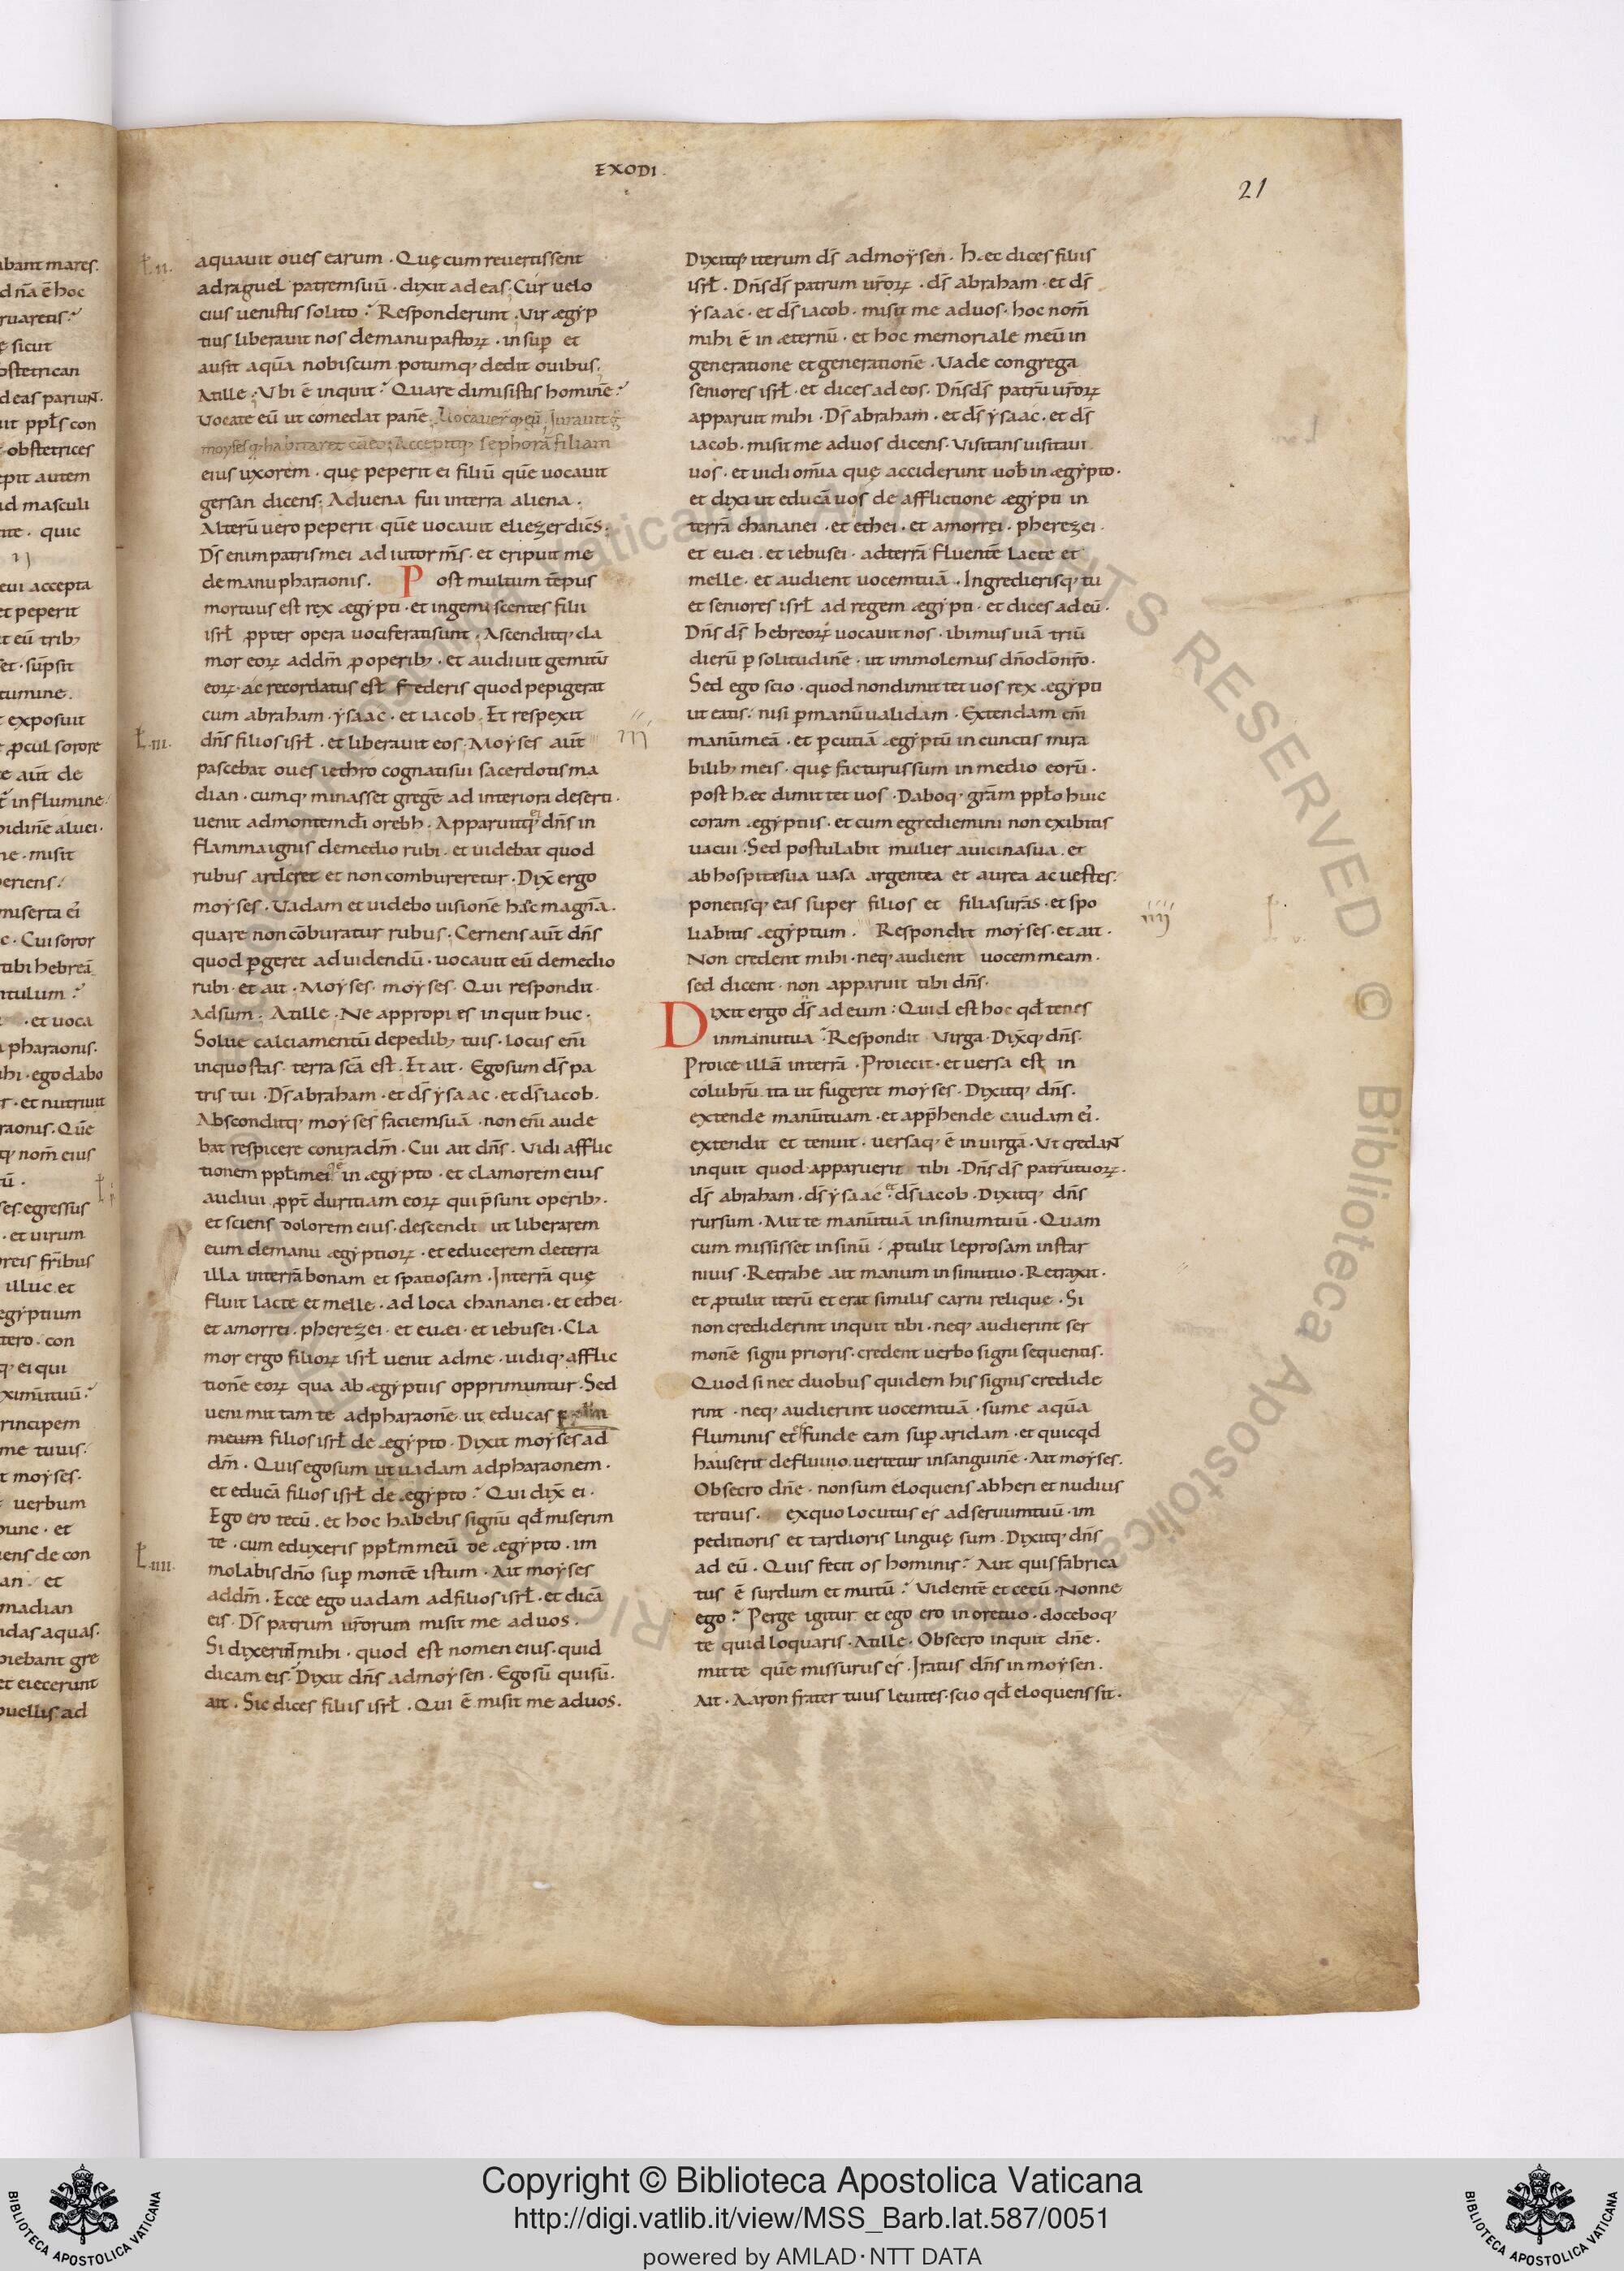 EXODI.
21
abant mares.
aquauit oues earum. Quę cum reuertissent
ad raguel patrem suū. dixit ad eas; Cur uelo
cius uenistis solito? Responderunt. Vir ægyp
tius liberauit nos de manu pastoꝝ. insup et
ausit aquā nobiscum potumq; dedit ouibus.
At ille; Vbi ē inquit? Quare dimisistis hominē?
uocate eū ut comedat panē.
moyses q habitaret cū eo; Accepitq; sephorā filiam
eius uxorem. quę peperit ei filiū quē uocauit
gersan dicens; Aduena fui in terra aliena.
Alterū uero peperit quē uocauit eliezer dicēs;
Dś enim patris mei adiutor mś. et eripuit me
de manu pharaonis. Post multum tēpus
mortuus est rex ægypti. et ingemiscentes filii
isrł ꝓpter opera uociferati sunt. Ascenditq; cla
mor eoꝝ ad dm̄ ꝓ operib; et audiuit gemitū
eoꝝ. ac recordatus est foederis quod pepigerat
cum abraham. ysaac. et iacob. Et respexit
dn̄s filios isrł. et liberauit eos. Moyses aūt
pascebat oues iethro cognati sui sacerdotis ma
dian. cumq; minasset gregē ad interiora deserti.
uenit ad montem dī orebh. Apparuitq; ei dn̄s in
flamma ignis de medio rubi. et uidebat quod
rubus arderet et non combureretur. Dix̄ ergo
moyses. Vadam et uidebo uisionē hāc magnā.
quare non cōburatur rubus. Cernens aūt dn̄s
quod ꝑgeret ad uidendū. uocauit eū de medio
rubi. et ait. Moyses. moyses. Qui respondit.
Adsum. At ille. Ne appropies inquit huc.
Solue calciamentū de pedib; tuis. locus em̄
in quo stas. terra scā est. Et ait. Ego sum dś pa
tris tui. Dś abraham. et dś ysaac. et dś iacob.
Absconditq; moyses faciem suā. non em̄ aude
bat respicere contra dm̄. Cui ait dn̄s. Vidi afflic
tionem ppłi mei in ægypto. et clamorem eius
audiui ꝓpt duritiam eoꝝ qui p̄sunt operib;.
et sciens dolorem eius. descendi ut liberarem
eum de manu ægyptioꝝ. et educerem de terra
illa in terrā bonam et spatiosam. In terrā quę
fluit lacte et melle. ad loca chananei. et ethei.
et amorrei. pherezei. et euæi. et iebusei. Cla
mor ergo filioꝝ isrł uenit ad me. uidiq; afflic
tionē eoꝝ qua ab ægyptiis opprimuntur. Sed
ueni mittam te ad pharaonē ut educas
meum filios isrł de ægypto. Dixit moyses ad
dm̄. Quis ego sum ut uadam ad pharaonem.
et educā filios isrł de ægypto? Qui dix̄ ei.
Ego ero tecū. et hoc habebis signū qđ miserim
te. cum eduxeris ppłm meū de ægypto. im
molabis dn̄o sup montē istum. Ait moyses
ad dm̄. Ecce ego uadam ad filios isrł. et dicā
eis. Dś patrum ur̄orum misit me ad uos.
Si dixerint mihi. quod est nomen eius. quid
dicam eis. Dixit dn̄s ad moysen. Ego sū qui sū.
ait. Sic dices filiis isrł. Qui ē misit me ad uos.
Dixitq; iterum dś ad moysen. Hæc dices filiis
isrł. Dn̄s dś patrum ur̄oꝝ. dś abraham. et dś
ysaac. et dś iacob. misit me ad uos. hoc nom̄
mihi ē in æternū. et hoc memoriale meū in
generatione et generationē. Vade congrega
seniores isrł. et dices ad eos. Dn̄s dś patrū ur̄oꝝ
apparuit mihi. Dś abraham. et dś ysaac. et dś
iacob. misit me ad uos dicens. Visitans uisitaui
uos. et uidi om̄ia quę acciderunt uob̄ in ægypto.
et dixi ut educā uos de afflictione ægypti in
terrā chananei. et ethei. et amorręi. pherezei.
et euæi. et iebusei. ad terrā fluentē lacte et
melle. et audient uocem tuā. Ingredierisq; tu
et seniores isrł ad regem ægypti. et dices ad eū.
Dn̄s dś hebreoꝝ uocauit nos. ibimus uiā triū
dierū ꝑ solitudinē. ut immolemus dn̄o dō nr̄o.
Sed ego scio. quod non dimittet uos rex ægypti
ut eatis. nisi ꝑ manū ualidam. Extendam em̄
manū meā. et ꝑcutiā ægyptū in cunctis mira
bilib; meis. quę facturus sum in medio eorū.
post hæc dimittet uos. Daboq; grām ppło huic
coram ægyptiis. et cum egrediemini non exibitis
uacui. Sed postulabit mulier a uicina sua. et
ab hospita sua uasa argentea et aurea ac uestes.
ponetisq; eas super filios et filias urās. et spo
liabitis ægyptum. Respondit moyses. et ait.
Non credent mihi. neq; audient uocem meam.
sed dicent. non apparuit tibi dn̄s.
Dixit ergo dś ad eum: Quid est hoc qđ tenes
in manu tua? Respondit. Virga. Dix̄q; dn̄s.
Proice illā in terrā. Proiecit. et uersa est in
colubrū. ita ut fugeret moyses. Dixitq; dn̄s.
extende manū tuam. et app̄hende caudam ei'.
extendit et tenuit. uersaq; ē in uirgā. Vt credant
inquit quod apparuerit tibi. Dn̄s dś patrū tuoꝝ.
dś abraham. dś ysaac. et dś iacob. Dixitq; dn̄s
rursum. Mitte manū tuā in sinum tuū. Quam
cum misisset in sinū. ꝓtulit leprosam instar
niuis. Retrahe ait manum in sinu tuo. Retraxit.
et ꝓtulit iterū et erat similis carni relique. Si
non crediderint inquit tibi. neq; audierint ser
monē signi prioris. credent uerbo signi sequentis.
Quod si nec duobus quidem his signis credide
rint. neq; audierint uocem tuā. sume aquā
fluminis et effunde eam sup aridam. et quicqd
hauserit de fluuio. uertetur in sanguinē. Ait moyses.
Obsecro dn̄e. non sum eloquens ab heri et nudius
tertius. ex quo locutus es ad seruum tuū. im
peditioris et tardioris linguę sum. Dixitq; dn̄s
ad eū. Quis fecit os hominis? Aut quis fabrica
tus ē surdum et mutū? Videntē et cecū. Nonne
ego? Perge igitur et ego ero in ore tuo. doceboq;
te quid loquaris. At ille. Obsecro inquit dn̄e.
mitte quē missurus es. Iratus dn̄s in moysen.
Ait. Aaron frater tuus leuites. scio qđ eloquens sit.
Copyright © Biblioteca Apostolica Vaticana
http://digi.vatlib.it/view/MSS_Barb.lat.587/0051
powered by AMLAD·NTT DATA
BIBLIOTECA APOSTOLICA VATICANA
BIBLIOTECA APOSTOLICA VATICANA